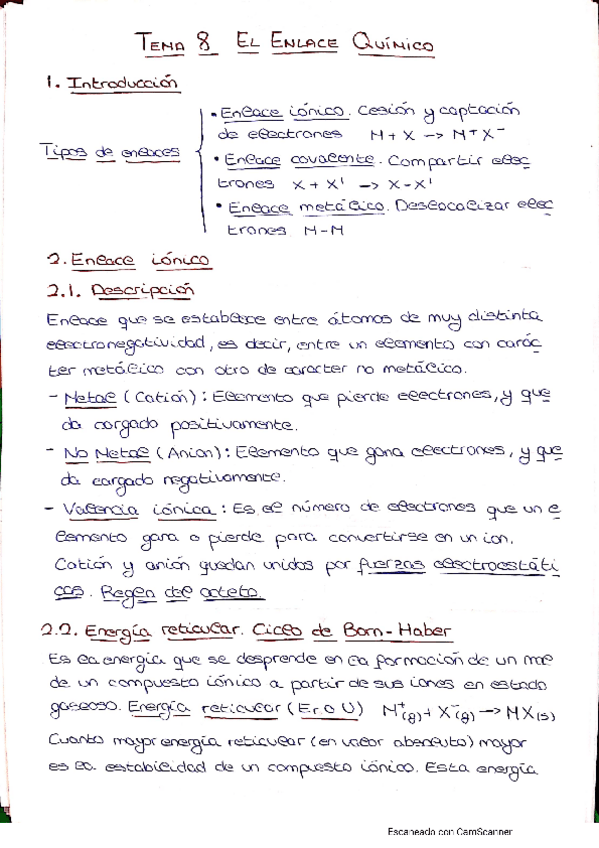 TEMA 8 EL ENLACE QUÍMICO
1. Introducción
Tipos de enlaces
• Enlace iónico. Cesión y captación
de electrones M + X -> M⁺X⁻
• Enlace covalente. Compartir elec
trones X + X' -> X-X'
• Enlace metálico. Deslocalizar elec
trones M-M
2. Enlace iónico
2.1. Descripción
Enlace que se establece entre átomos de muy distinta
electronegatividad, es decir, entre un elemento con carác
ter metálico con otro de caracter no metálico.
- Metal (Catión): Elemento que pierde electrones, y que
da cargado positivamente.
- No Metal (Anion): Elemento que gana electrones, y que
da cargado negativamente.
- Valencia iónica: Es el número de electrones que un e
lemento gana o pierde para convertirse en un ion.
Catión y anión quedan unidos por fuerzas electroestáti
cas. Regen del octeto.
2.2. Energía reticular. Ciclo de Born-Haber
Es la energía que se desprende en la formación de un mol
de un compuesto iónico a partir de sus iones en estado
gaseoso. Energía reticular (Er o U) M⁺(g) + X⁻(g) -> MX(s)
Cuanto mayor energía reticular (en valor absoluto) mayor
es la estabilidad de un compuesto iónico. Esta energía
Escaneado con CamScanner